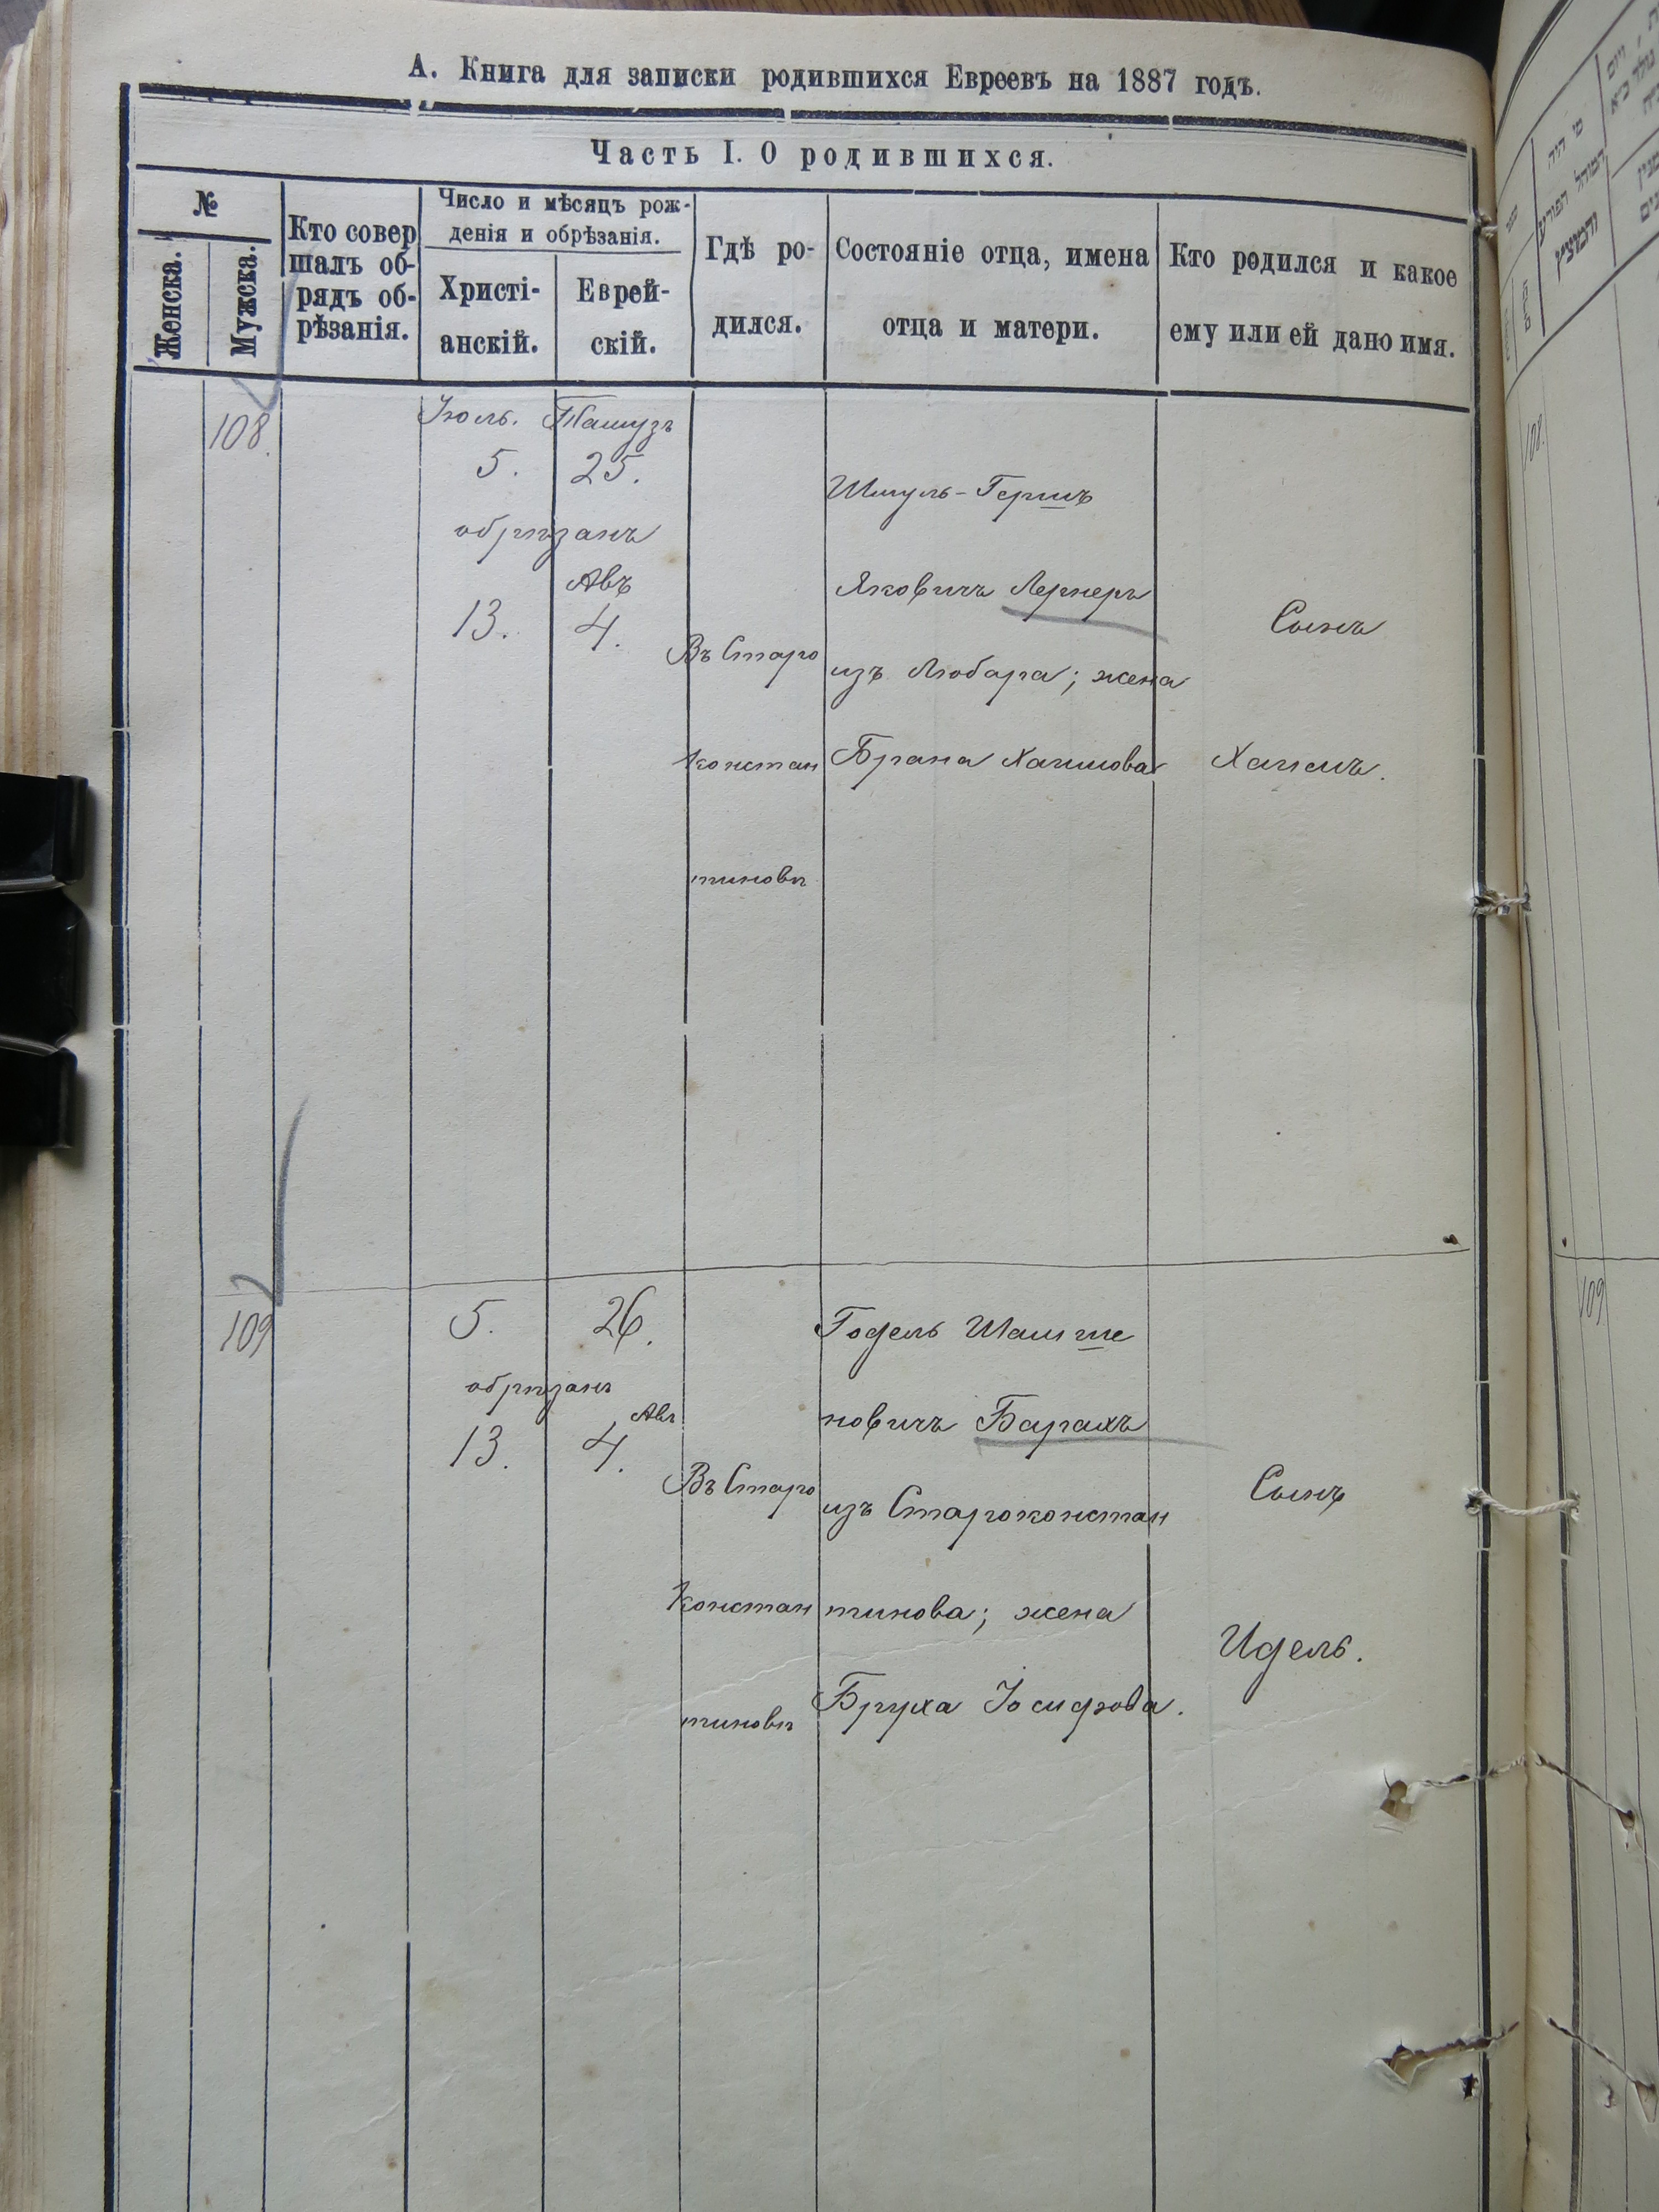 А. Книга для записки родившихся Евреевъ на 1887 годъ.
Часть I. О родившихся.
№
Женска.
Мужска.
Кто совер
шалъ об-
рядъ об-
рѣзанія.
Число и мѣсяцъ рож-
денія и обрѣзанія.
Христі-
анскій.
Еврей-
скій.
Гдѣ ро-
дился.
Состояніе отца, имена
отца и матери.
Кто родился и какое
ему или ей дано имя.
108.
Іюль.
5.
Тамузъ
25.
обрѣзанъ
13.
Авъ
4.
Въ Старо
констан
тиновѣ
Шмуль-Гершъ
Яковичъ Лернеръ
изъ Любара; жена
Брана Хаимова
Сынъ
Хаимъ.
109
5.
26.
обрѣзанъ
13.
Авъ
4.
Въ Старо
констан
тиновѣ
Годель Шапше
новичъ Барахъ
изъ Староконстан
тинова; жена
Бруха Іосифова.
Сынъ
Идель.
108.
109